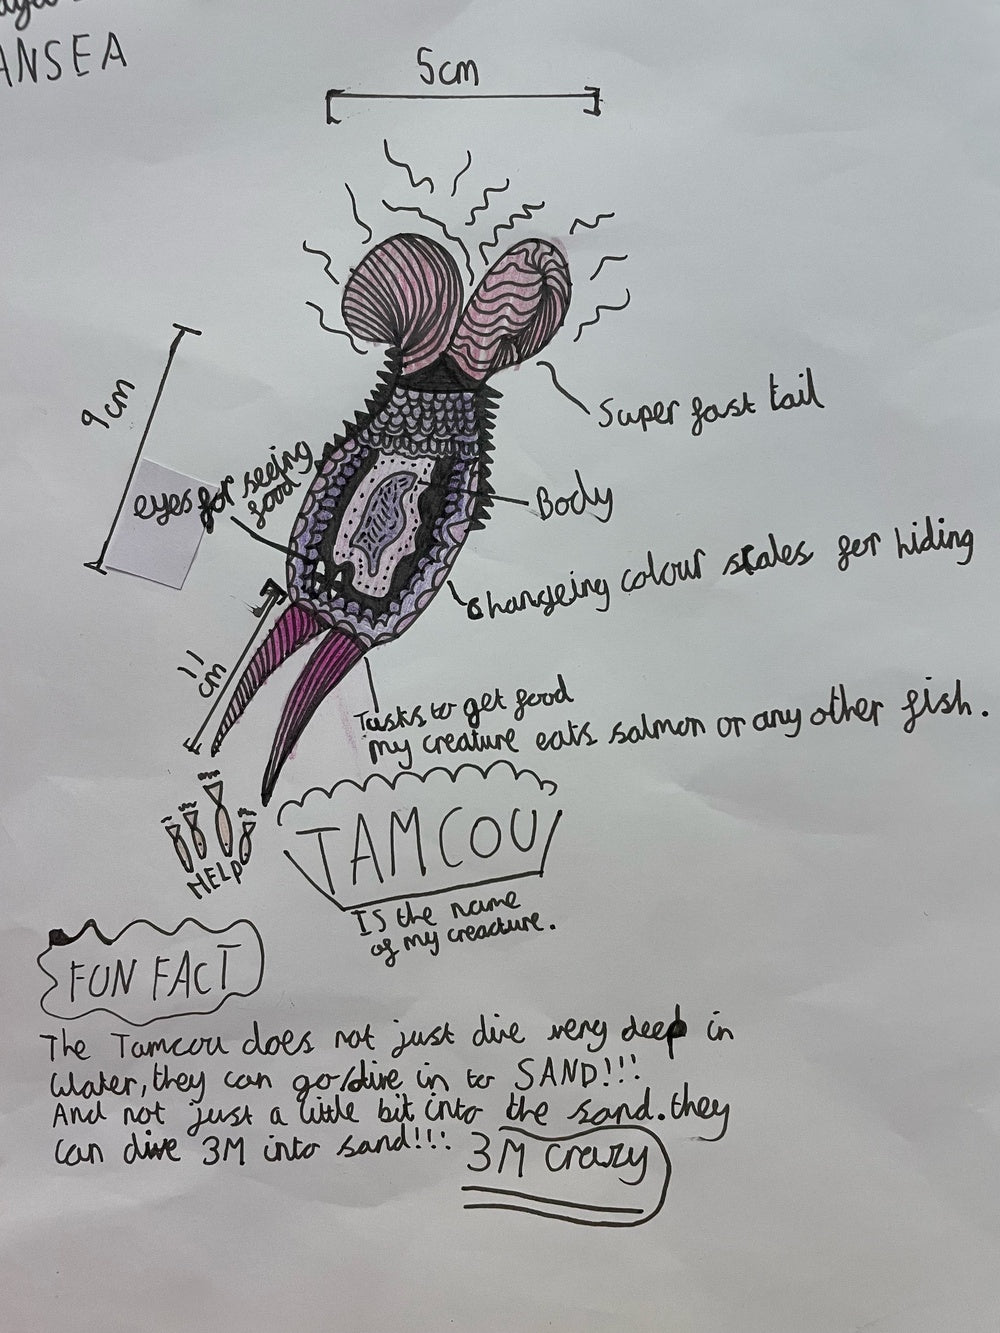 ANSEA
5cm
9cm
Super fast tail
eyes for seeing
food
Body
changeing colour scales for hiding
11
cm
Tusks to get food
my creature eats salmon or any other fish.
HELP
TAMCOU
IS the name
of my creacture.
FUN FACT
The Tamcou does not just dive very deep in
Water, they can go/dive in to SAND!!!
And not just a little bit into the sand. they
can dive 3M into sand!!! 3M crazy